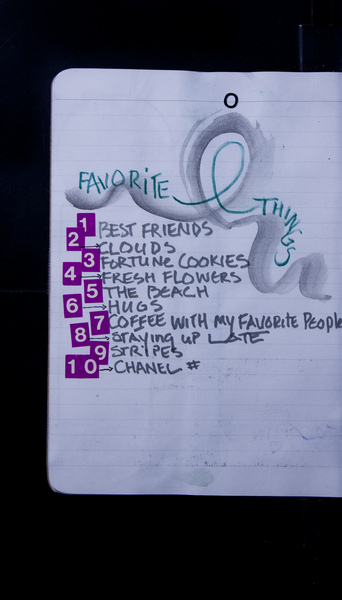 O
FAVORITE THINGS
1 BEST FRIENDS
2 CLOUDS
3 FORTUNE COOKIES
4 FRESH FLOWERS
5 THE BEACH
6 HUGS
7 COFFEE WITH MY FAVORITE PEOPLE
8 STAYING UP LATE
9 STRIPES
10 CHANEL #